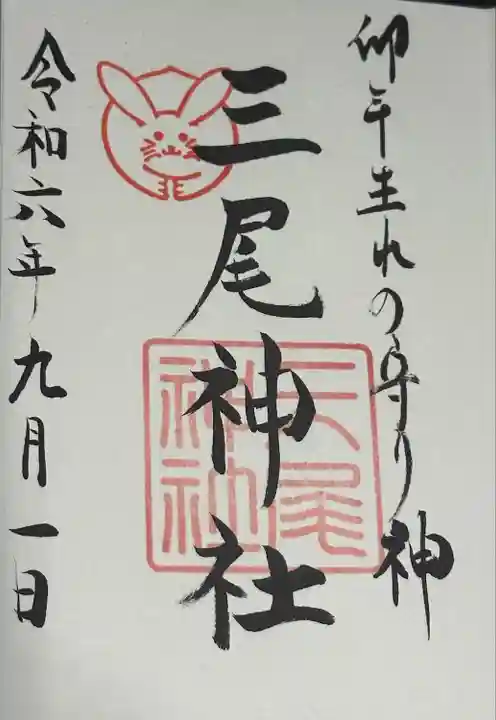 卯年生れの守り神
三尾神社
三尾
神社
令和六年九月一日